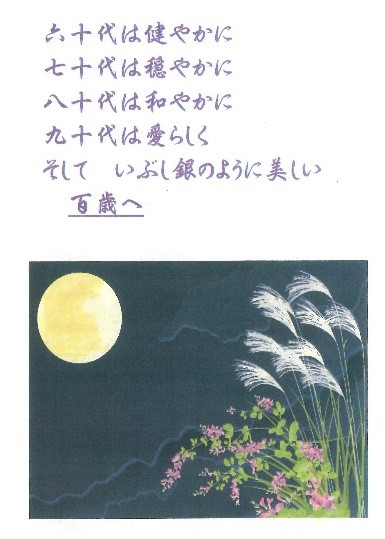 六十代は健やかに
七十代は穏やかに
八十代は和やかに
九十代は愛らしく
そして　いぶし銀のように美しい
百歳へ